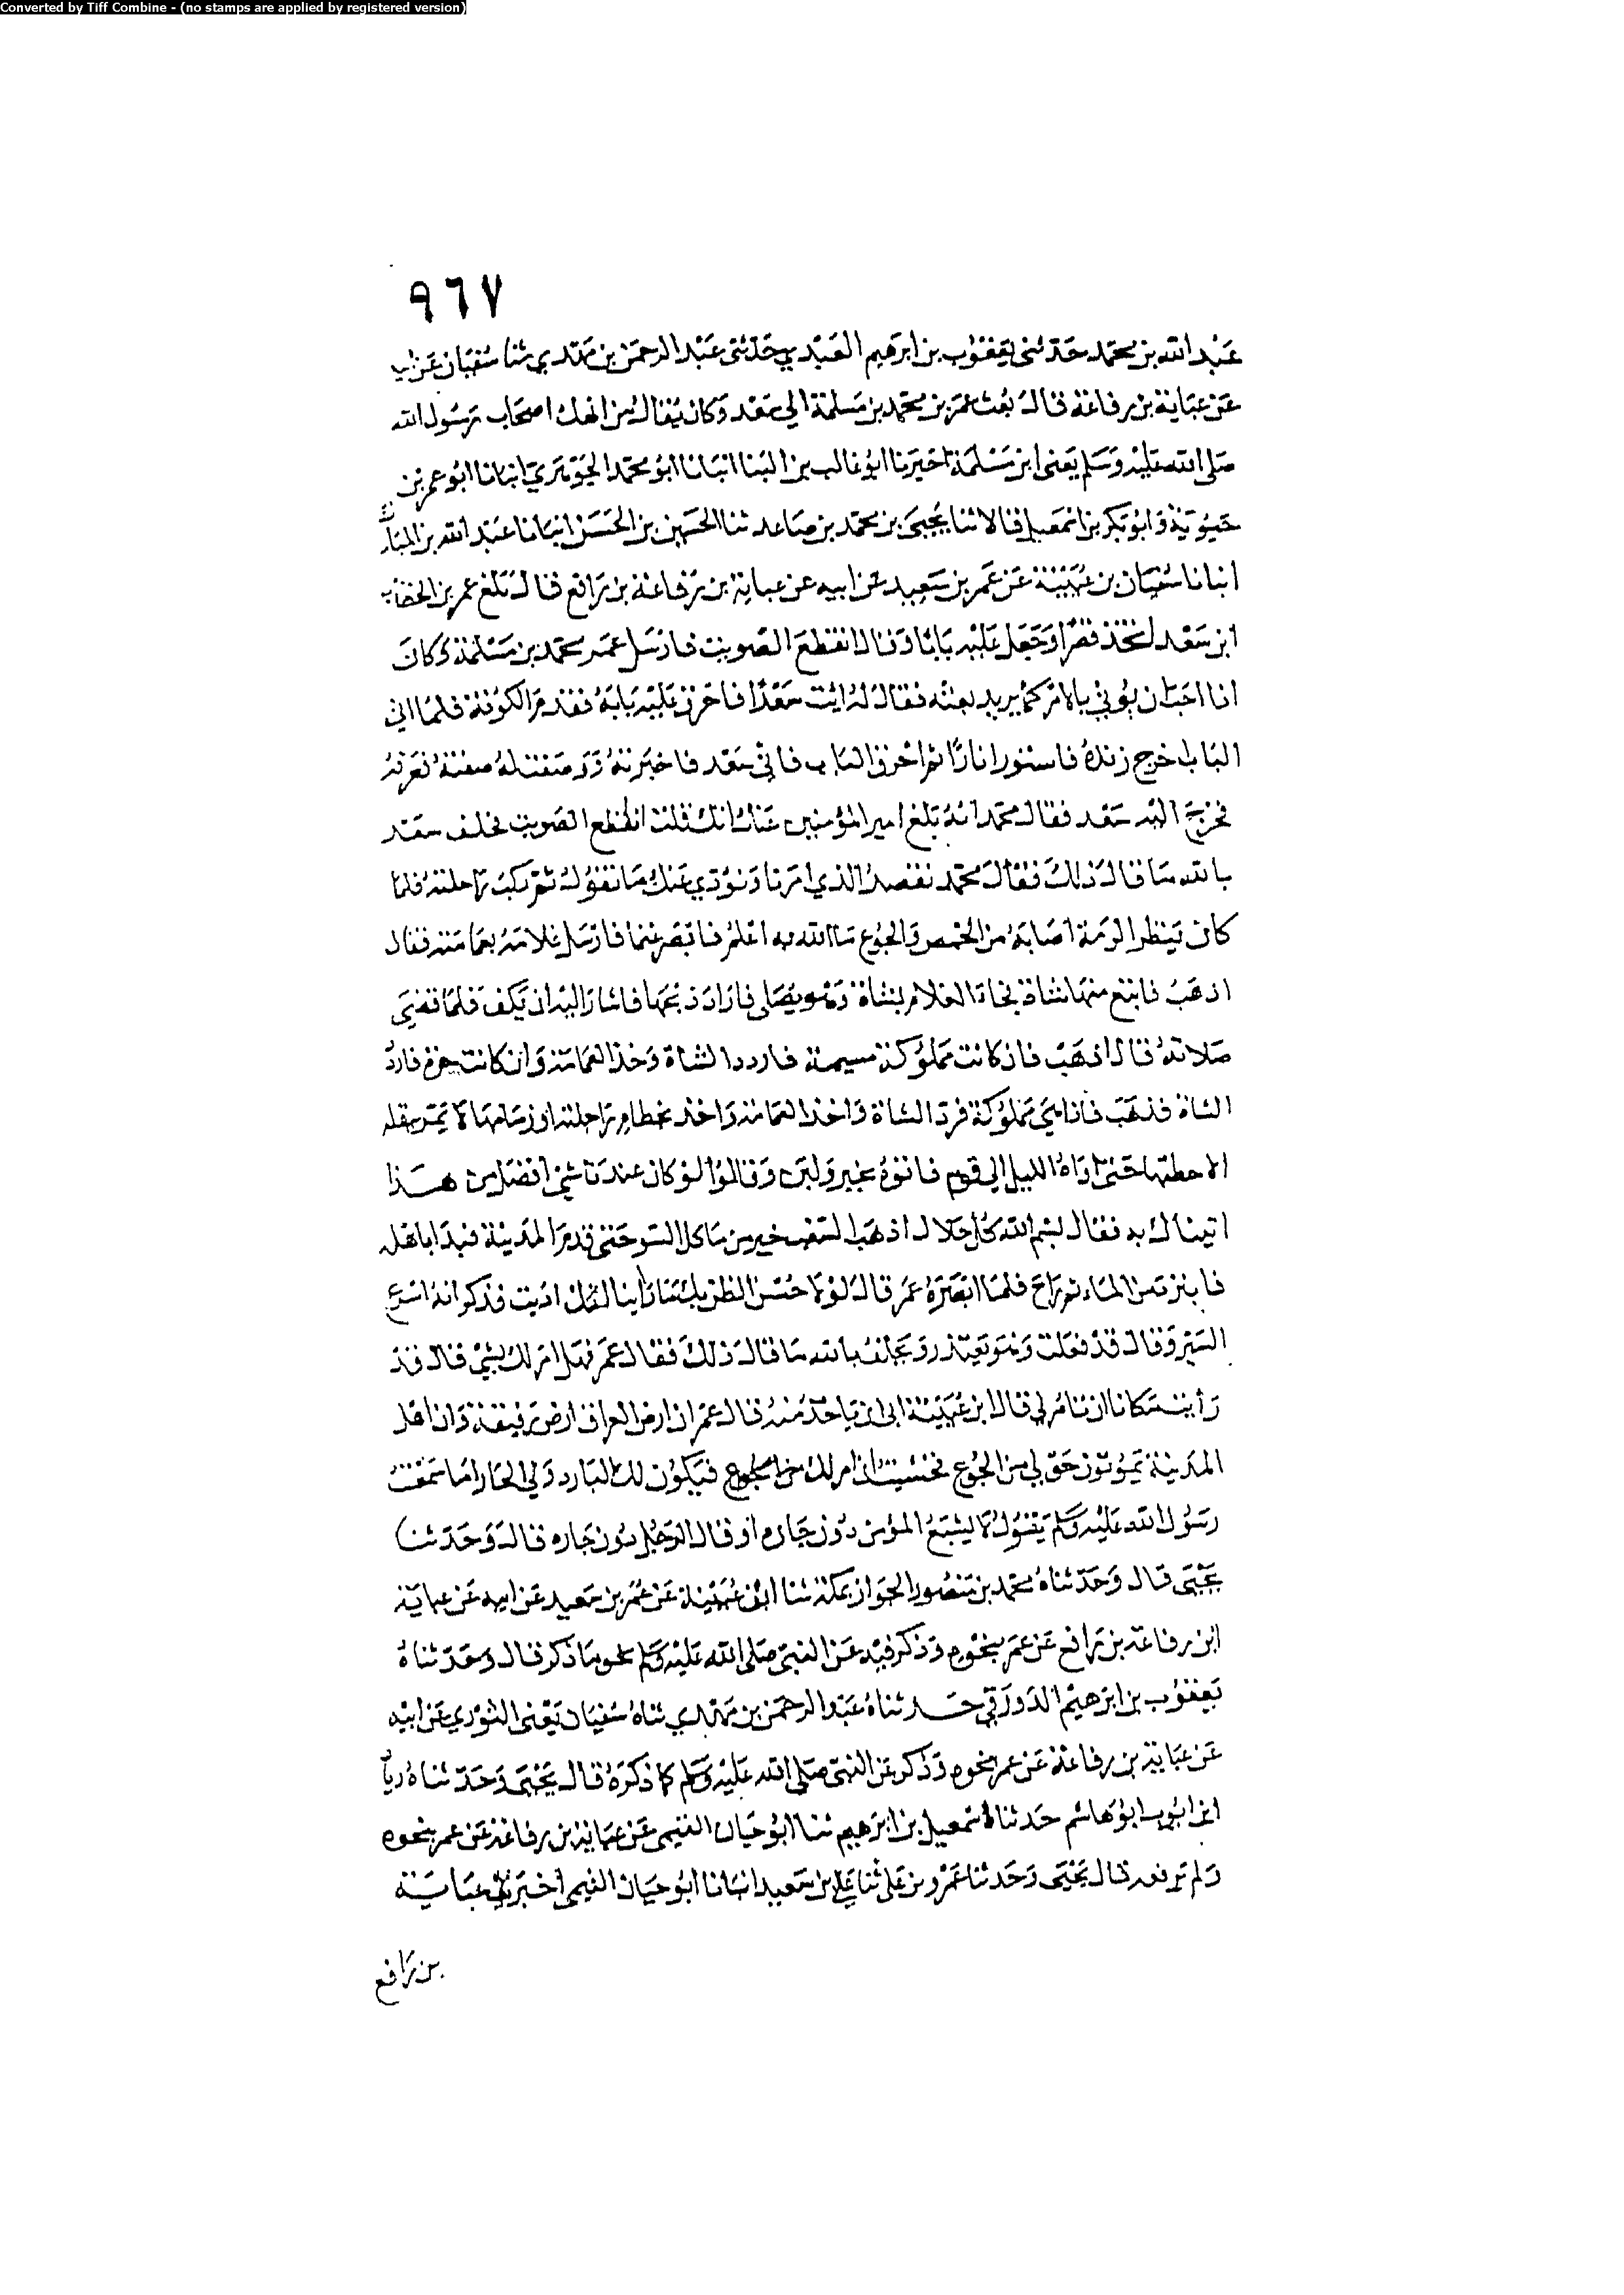 Converted by Tiff Combine - (no stamps are applied by registered version)
٩٦٧
عبد الله بن محمد حدثني يعقوب بن ابرهيم العبدي حدثني عبد الرحمن بن مهدي ثنا سفيان عن
عن عباية بن رفاعة قال بعث عمر بن محمد بن مسلمة الى سعد وكان يقال من انهك اصحاب رسول الله
صلى الله عليه وسلم يعني ابن مسلمة اخبرنا ابو غالب بن البنا انبانا ابو محمد الجوهري انبانا ابو عمر بن
حيوية وابو بكر بن اسمعيل قالا ثنا يحيى بن محمد بن صاعد ثنا الحسين بن الحسن انبانا عبد الله بن المبارك
انبانا سفيان بن عيينة عن عمر بن سعيد عن ابيه عن عباية بن رفاعة بن رافع قال بلغ عمر بن الخطاب
ابن سعد اتخذ قصرا وجعل عليه بابا وقال انقطع الصويت فارسل عمر محمد بن مسلمة وكان
اذا احب ان يوتى بالامر كما يريد بعثه فقال له ائت سعدا فاحرق عليه بابه فقدم الكوفة فلما اتى
الباب اخرج زنده فاستورا نارا ثم احرق الباب فاتي سعد فاخبرته ووصفت له صفته فعرفه
فخرج اليه سعد فقال محمد انه بلغ امير المؤمنين عنك انك قلت انقطع الصويت فحلف سعد
بالله ما قال ذلك فقال محمد نفعل الذي امرنا ونؤدي عنك ما تقول ثم ركب راحلته فلما
كان ببطن الرمة اصابه من الخمص والجوع ما الله به اعلم فابصر غنما فارسل غلامه بعمامته فقال
اذهب فابتع منها شاة فجاء الغلام بشاة وهو يصلي فاراد ذبحها فاشار اليه ان يكف فلما قضى
صلاته قال اذهب فان كانت مملوكة مسيمة فاردد الشاة وخذ العمامة وان كانت حرة فاردد
الشاة فذهب فاذا هي مملوكة فرد الشاة واخذ العمامة واخذ بخطام راحلته او زمامها لا يمر ببقلة
الا خطتها حتى اواه الليل الى قوم فاتوه بخبز ولبن وقالوا لو كان عندنا شي افضل من هذا
اتيناك به فقال بسم الله كل حلال اذهب السغب خير من ماكل السو حتى قدم المدينة فبدا باهله
فابترد من الماء ثم راح فلما ابصره عمر قال لولا حسن الظن بك ما راينا انك اديت فذكر انه اسرع
السير وقال قد فعلت وهو يعتذر ويحلف بالله ما قال ذلك فقال عمر فهل امر لك بشي قال قد
رأيت مكانا ان تامر لي قال ابن عيينة ابى ان ياخذ منه قال عمر ان ارض العراق ارض رفيقة وان اهل
المدينة يموتون حولي من الجوع فخشيت ان امر لك فيكون لك البارد ولي الحار اما سمعت
رسول الله عليه وسلم يقول لا يشبع المؤمن دون جاره او قال الرجل دون جاره قال وحدثنا
يحيى قال وحدثناه محمد بن منصور الجواز بمكة ثنا ابن عيينة عن عمر بن سعيد عن ابيه عن عباية
ابن رفاعة بن رافع عن عمر بنحوه وذكر فيه عن النبي صلى الله عليه وسلم نحو ما ذكر قال وحدثناه
يعقوب بن ابرهيم الدورقي حدثناه عبد الرحمن بن مهدي ثناه سفيان يعني الثوري عن ابيه
عن عباية بن رفاعة عن عمر بنحوه وذكر عن النبي صلى الله عليه وسلم كما ذكره قال يحيى وحدثناه زياد
ابن ايوب ابو هاشم حدثناه اسمعيل بن ابرهيم ثنا ابو حيان التيمي عن عباية بن رفاعة عن عمر بنحوه
ولم يرفعه قال يحيى وحدثنا عمرو بن علي ثنا يحيى بن سعيد انبانا ابو حيان التيمي اخبرني عباية
بن رافع